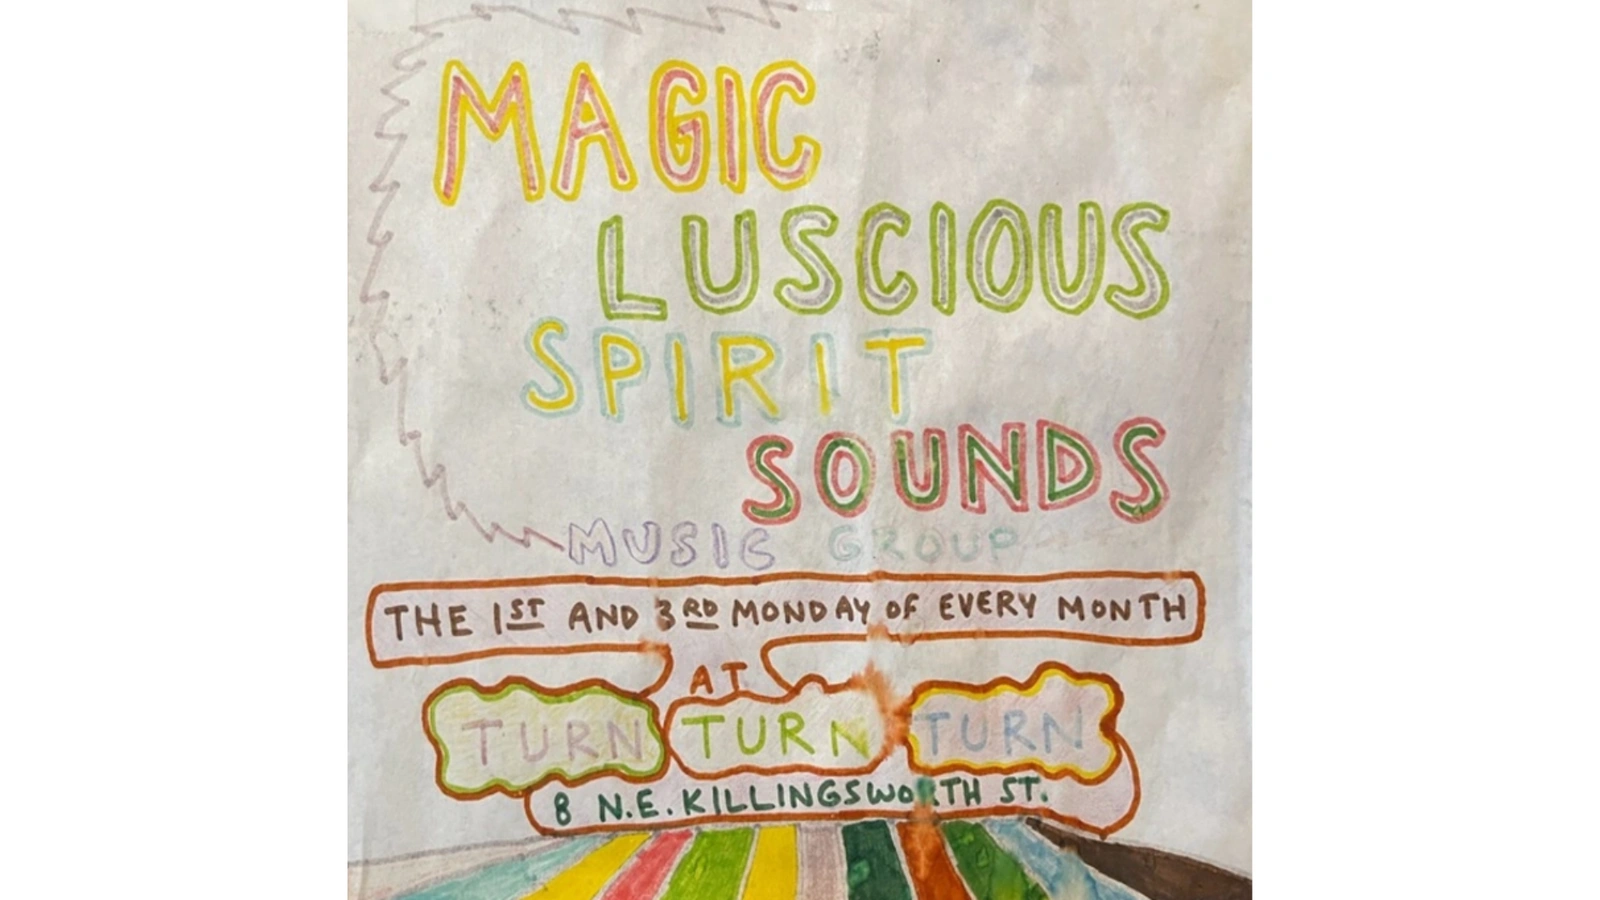 MAGIC
LUSCIOUS
SPIRIT
SOUNDS
MUSIC GROUP
THE 1ST AND 3RD MONDAY OF EVERY MONTH
AT
TURN TURN TURN
8 N.E. KILLINGSWORTH ST.